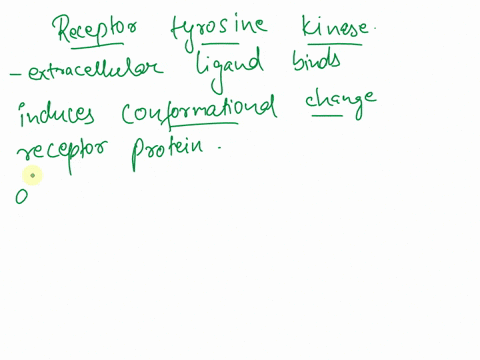 Receptor tyrosine kinase.
- extracellular ligand binds
induces conformational change
receptor protein.
o